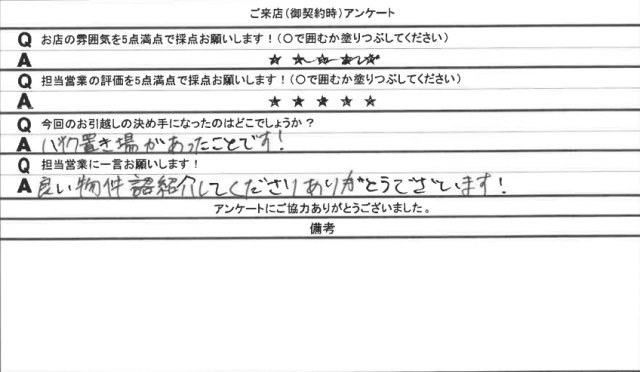 ご来店(御契約時)アンケート
Q お店の雰囲気を5点満点で採点お願いします!(○で囲むか塗りつぶしてください)
A ★ ★ ★ ★ ★
Q 担当営業の評価を5点満点で採点お願いします!(○で囲むか塗りつぶしてください)
A ★ ★ ★ ★ ★
Q 今回のお引越しの決め手になったのはどこでしょうか?
A バイク置き場があったことです!
Q 担当営業に一言お願いします!
A 良い物件認紹介してくださりありがとうございます!
アンケートにご協力ありがとうございました。
備考